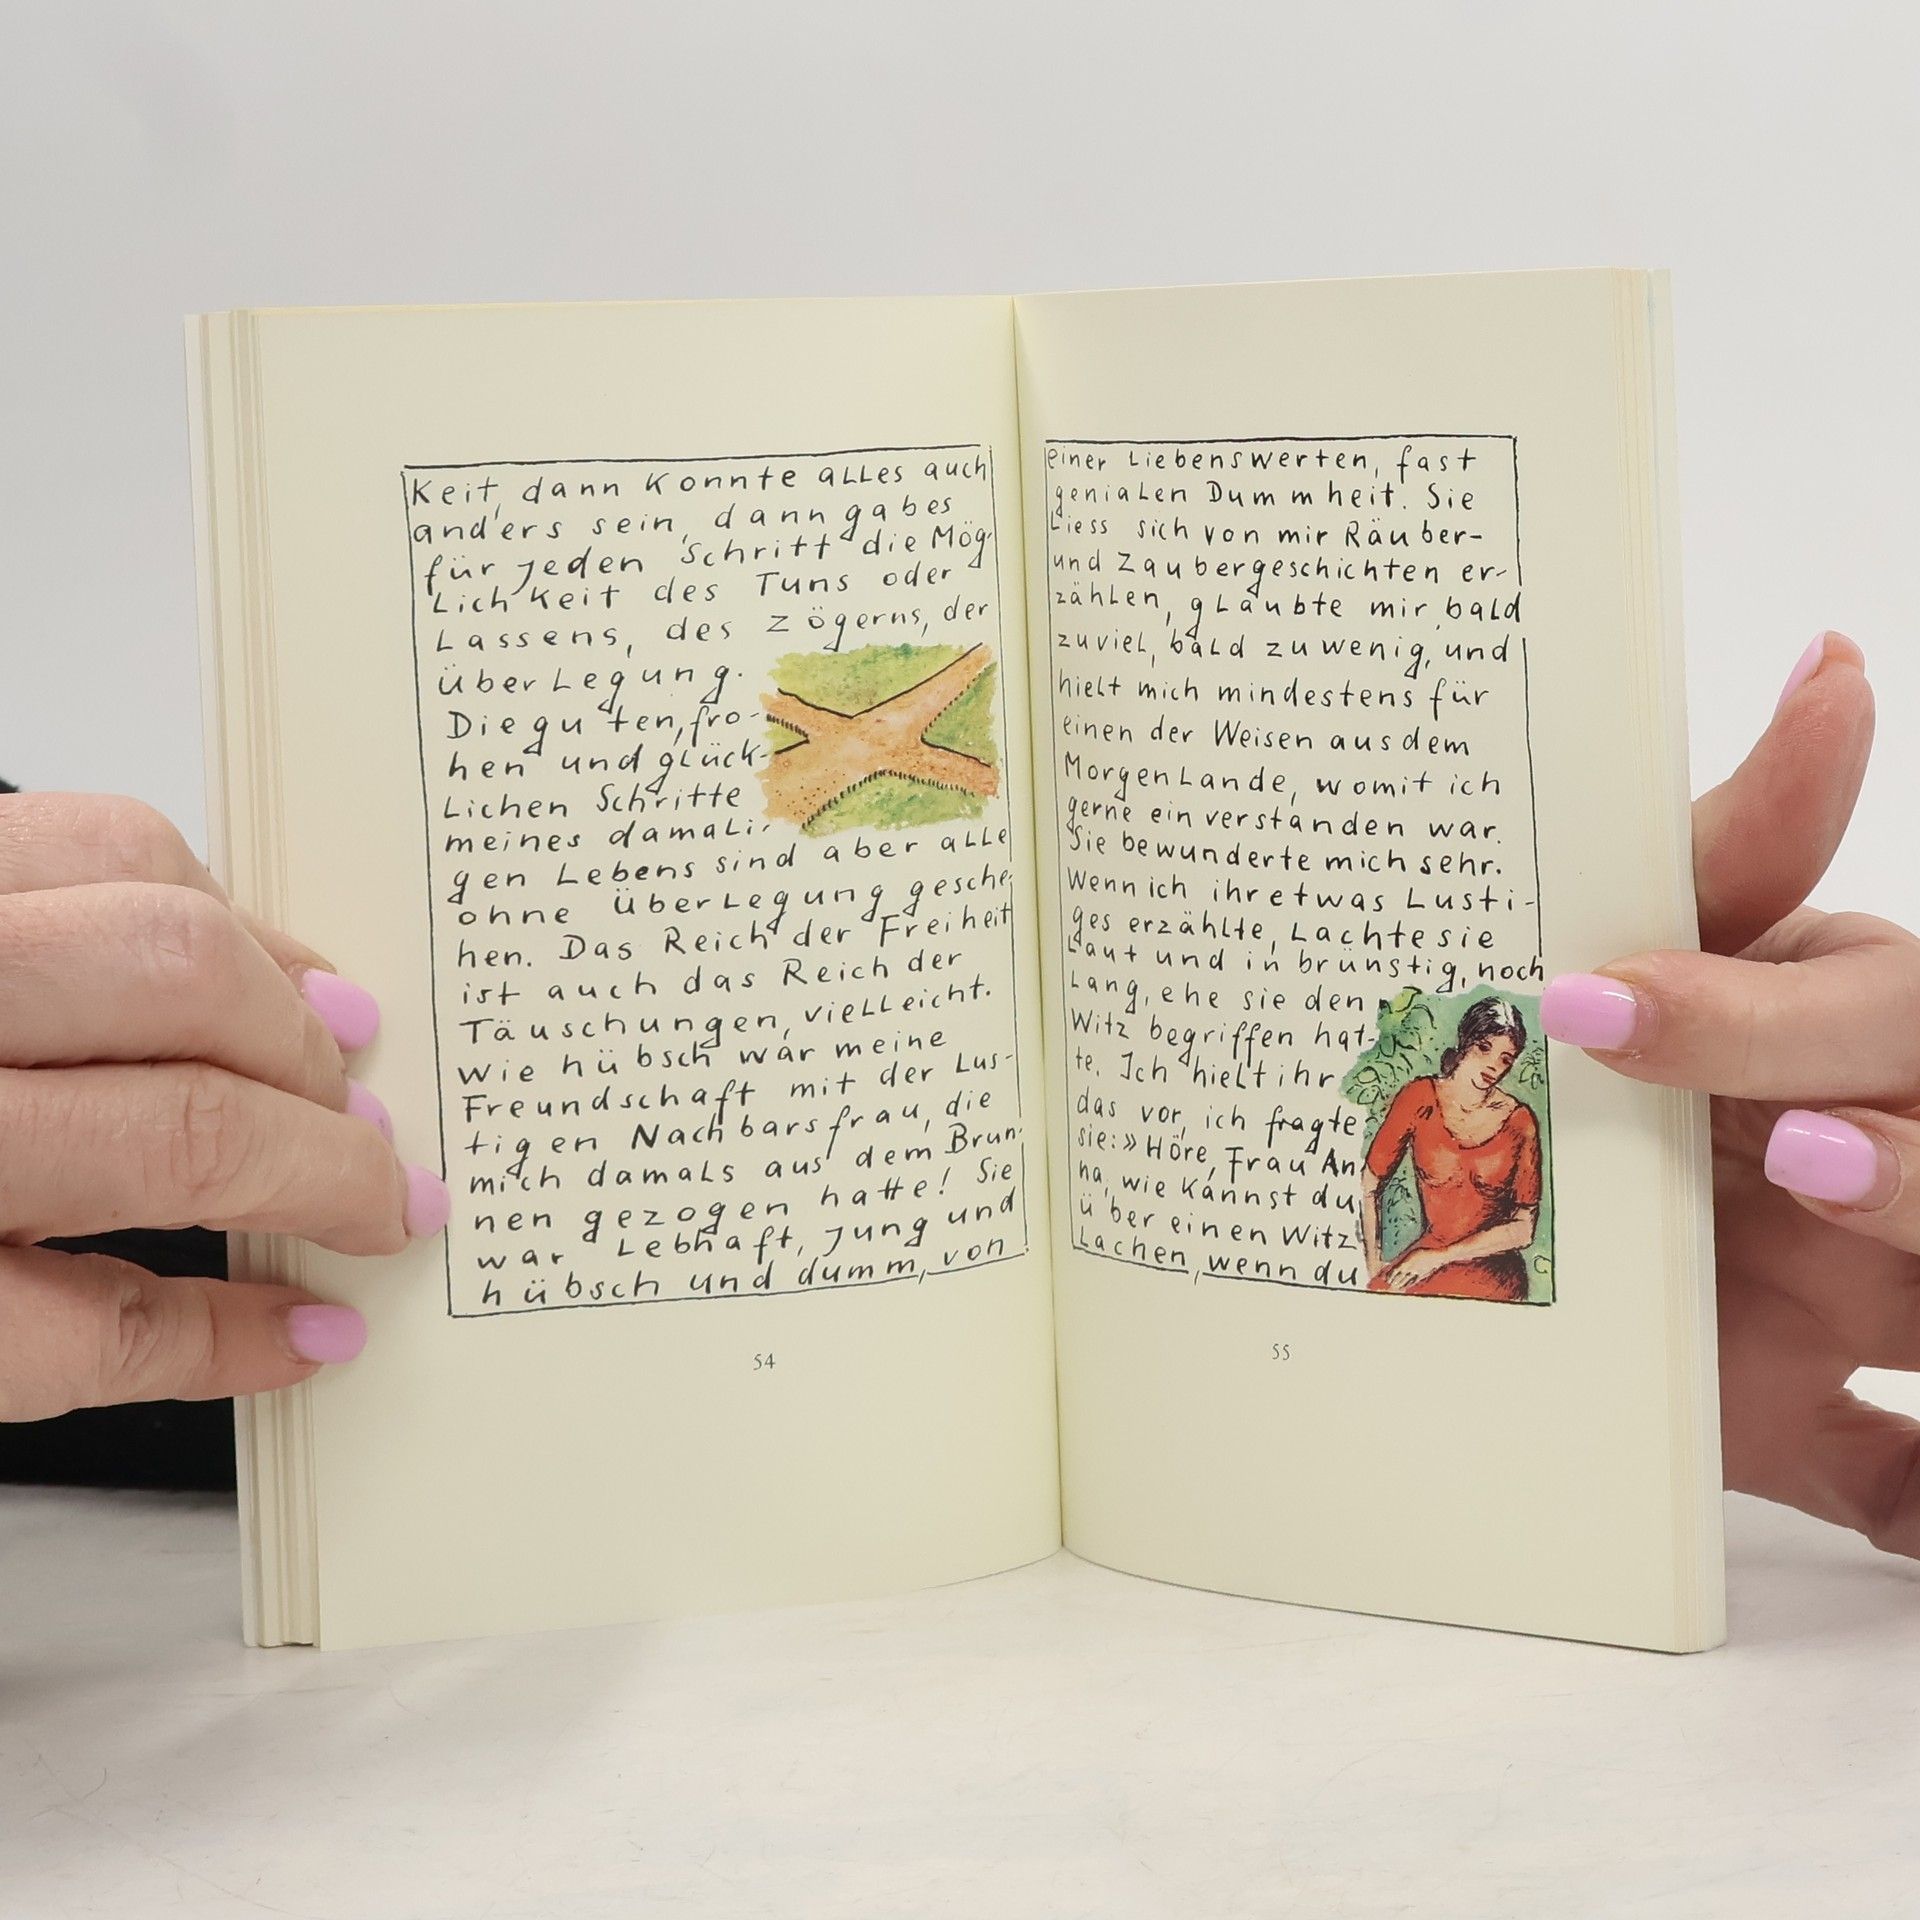 keit, dann konnte alles auch
anders sein, dann gab es
für jeden Schritt die Mög-
lichkeit des Tuns oder
Lassens, des Zögerns, der
Überlegung.
Die guten, fro-
hen und glück-
lichen Schritte
meines damali-
gen Lebens sind aber alle
ohne Überlegung gesche-
hen. Das Reich der Freiheit
ist auch das Reich der
Täuschungen, vielleicht.
Wie hübsch war meine
Freundschaft mit der lus-
tigen Nachbarsfrau, die
mich damals aus dem Brun-
nen gezogen hatte! Sie
war lebhaft, jung und
hübsch und dumm, von
54
einer liebenswerten, fast
genialen Dummheit. Sie
liess sich von mir Räuber-
und Zaubergeschichten er-
zählen, glaubte mir bald
zuviel, bald zu wenig, und
hielt mich mindestens für
einen der Weisen aus dem
Morgenlande, womit ich
gerne einverstanden war.
Sie bewunderte mich sehr.
Wenn ich ihr etwas Lusti-
ges erzählte, lachte sie
laut und inbrünstig, noch
lang, ehe sie den
Witz begriffen hat-
te. Ich hielt ihr
das vor, ich fragte
sie: »Höre, Frau An
na, wie kannst du
über einen Witz
lachen, wenn du
55